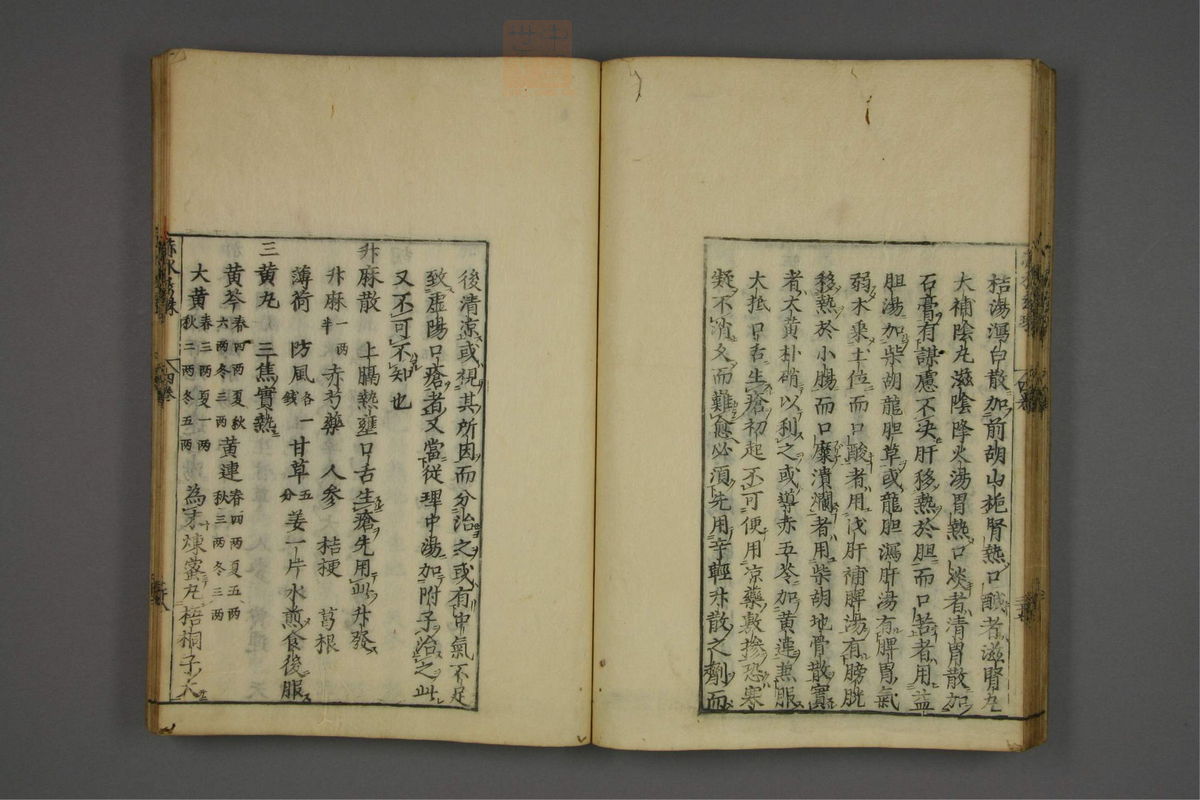 桔湯瀉白散加前胡山梔腎熱口鹹者滋腎丸
大補陰丸滋陰降火湯胃熱口淡者清胃散加
石膏有謀慮不决肝移熱於胆而口苦者用益
胆湯加柴胡龍胆草或龍胆瀉肝湯有脾胃氣
弱木乘土位而口酸者用伐肝補脾湯有膀胱
移熱於小腸而口糜潰爛者用柴胡地骨散實
者大黄朴硝以利之或導赤五苓加黄連煎服
大抵口舌生瘡初起不可便用凉藥敷掺恐寒
凝不消久而難愈必須先用辛輕升散之劑而
後清凉或視其所因而分治之或有中氣不足
致虚陽口瘡者又當從理中湯加附子治之此
又不可不知也
升麻散 上膈熱壅口舌生瘡先用此升發
升麻一両半 赤芍藥 人參 桔梗 葛根
薄荷 防風各一錢 甘草五分 姜一片水煎食後服
三黄丸 三焦實熱
黄芩春四両夏秋六両冬三両 黄連春四両夏五両秋三両冬三両
大黄春三両夏一両秋二両冬五両 為末煉蜜丸梧桐子大
赤水玄珠 四卷